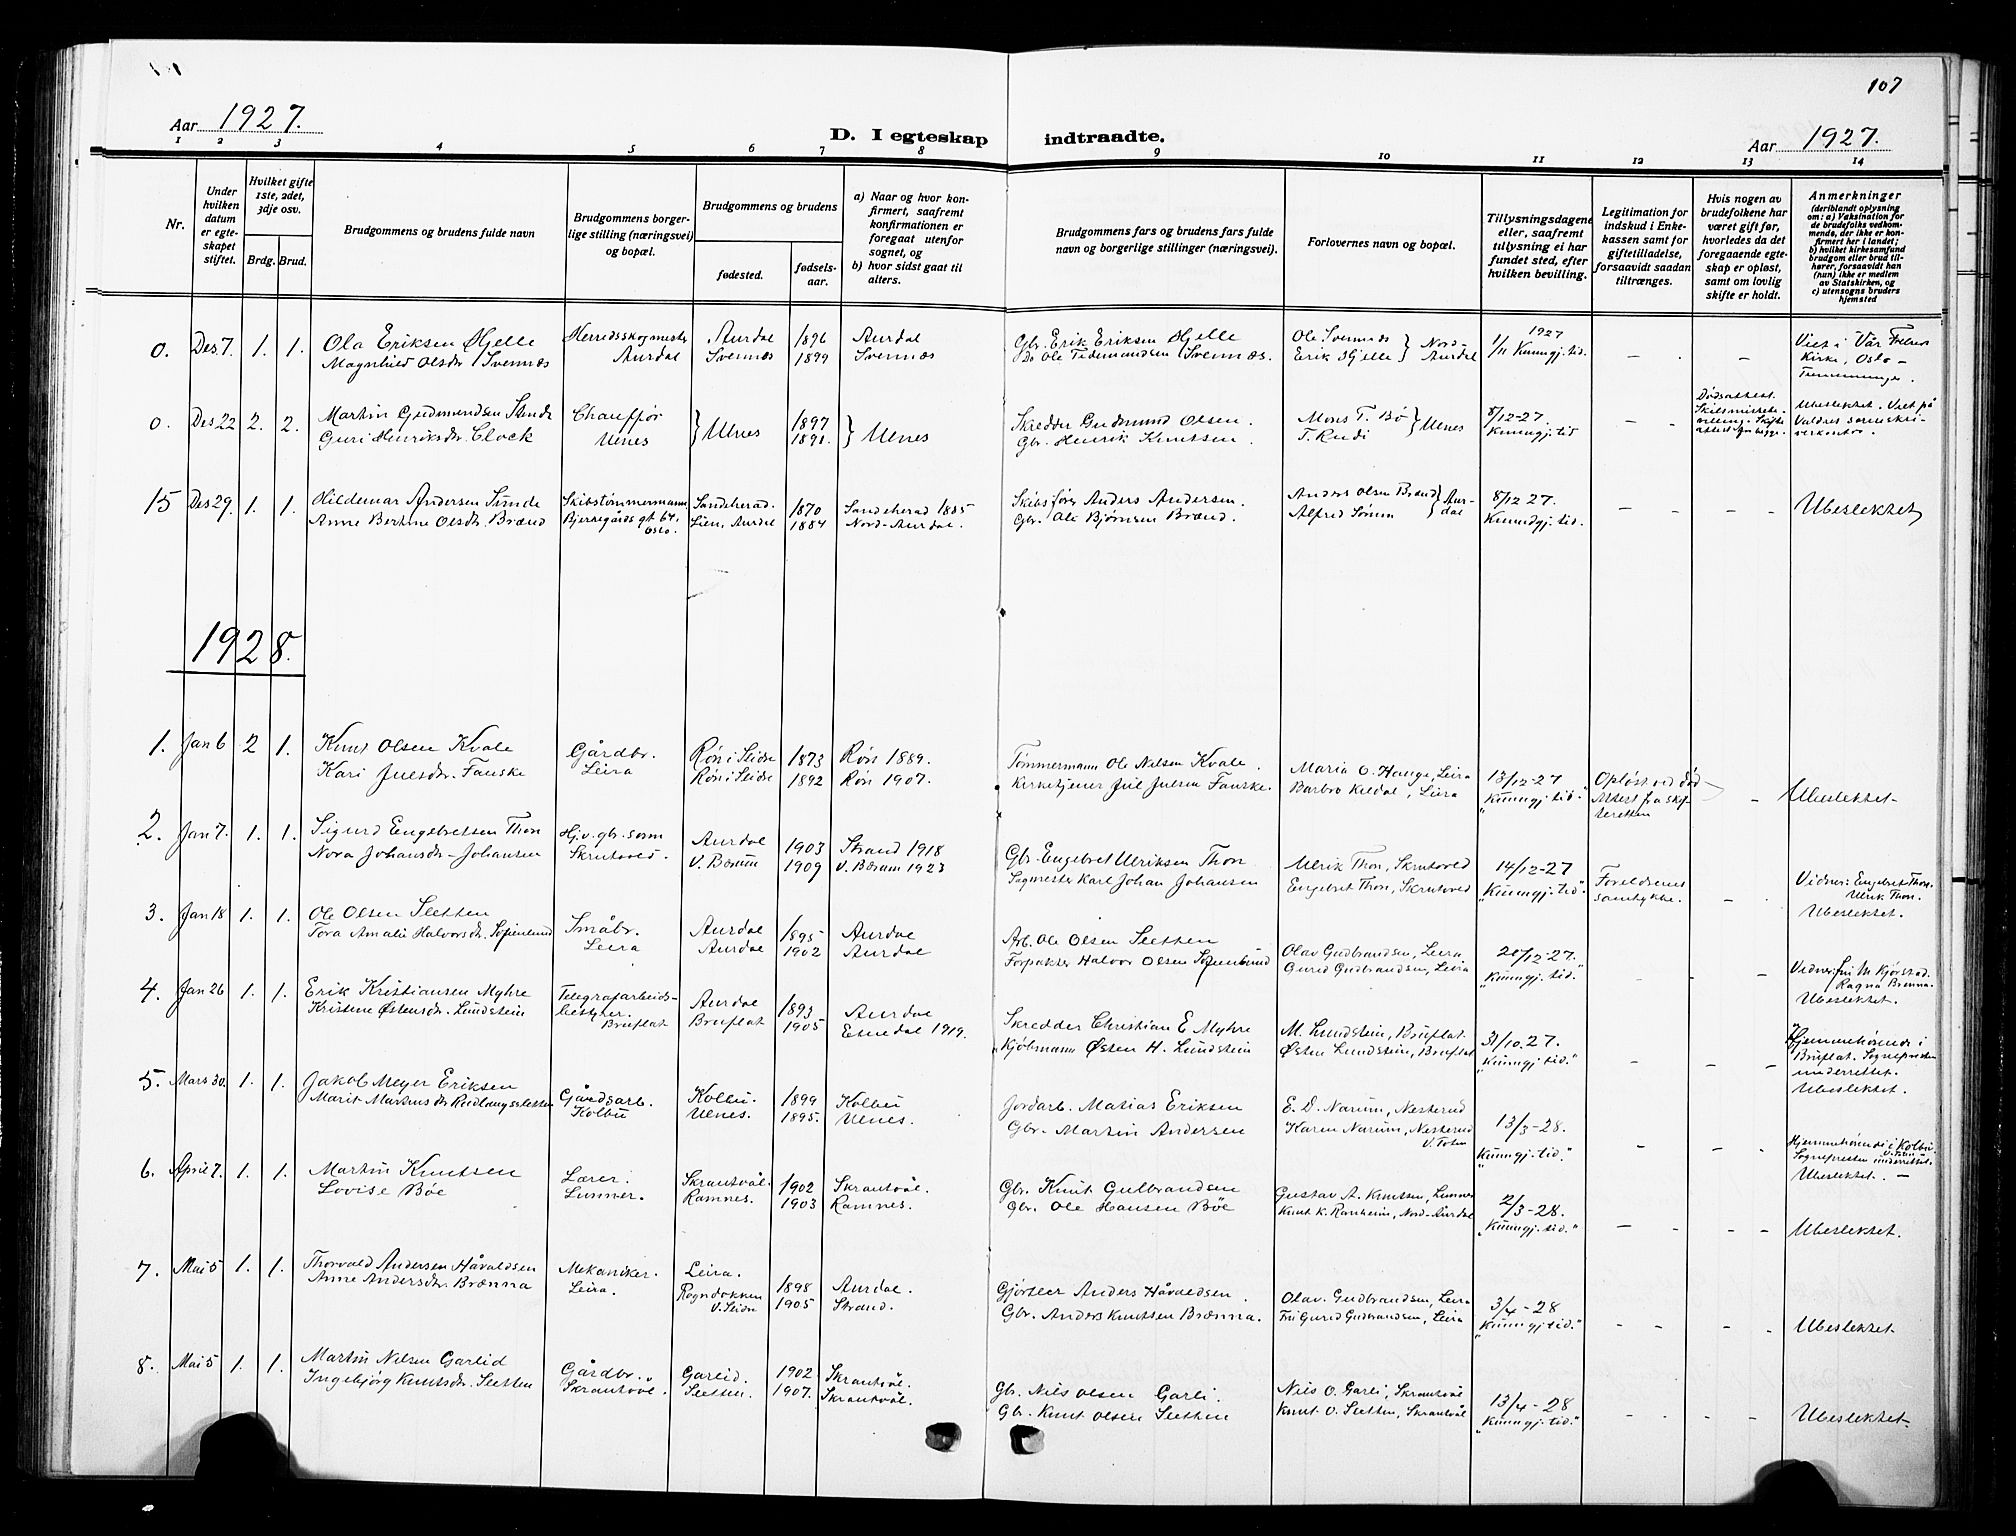 107
Aar 1927.
D. I egteskap indtraadte.
Aar 1927.
1 2 3 4 5 6 7 8 9 10 11 12 13 14
Nr.
Under hvilken datum er egteskapet stiftet.
Hvilket gifte 1ste, 2det, 3dje osv.
Brdg. Brud.
Brudgommens og brudens fulde navn
Brudgommens borgerlige stilling (næringsvei) og bopæl.
Brudgommens og brudens
fødested. fødselsaar.
a) Naar og hvor konfirmert, saafremt konfirmationen er foregaat utenfor sognet, og
b) hvor sidst gaat til alters.
Brudgommens fars og brudens fars fulde navn og borgerlige stillinger (næringsvei).
Forlovernes navn og bopæl.
Tillysningsdagene eller, saafremt tillysning ei har fundet sted, efter hvilken bevilling.
Legitimation for indskud i Enkekassen samt for giftetilladelse, forsaavidt saadan tiltrænges.
Hvis nogen av brudefolkene har været gift før, hvorledes da det foregaaende egteskap er opløst, samt om lovlig skifte er holdt.
Anmerkninger
(deriblandt oplysning om: a) Vaksination for de brudefolks vedkommende, der ikke er konfirmert her i landet; b) hvilket kirkesamfund brudgom eller brud tilhører, forsaavidt han (hun) ikke er medlem av Statskirken, og c) utensogns bruders hjemsted
0. Des 7. 1. 1. Ola Eriksen Hjelle Herredsskogmester Aurdal 1896 Aurdal Gbr. Erik Eriksen Hjelle Ole Svennes } Nord- 1927 Viet i Vår Frelsers
Magnhild Olsdr. Svennes Aurdal Svennes 1899 Svennes Do Ole Tidemandsen Svennes. Erik Hjelle Aurdal 1/11 Kunngj. tid. - - Kirke, Oslo -
0. Des 22 2. 2. Martin Gudmundsen Chauffør } Ulnes 1897 } Ulnes Skredder Gudmund Olsen. Mons T. Bø } Ulnes 8/12-27. - - Dødsattest. Ubeslektet. Viet på
Guri Henriksdr. Clock Ulnes 1891. Gbr. Henrik Knutsen. T. Rudi Kunngj. tid Valdres sorenskriverkontor.
15 Des 29. 1. 1. Hildemar Andersen Sunde Skibstømmermann Sandeherad. 1870 Sandeherad 1885 Skibsfører Anders Andersen. Anders Olsen Brænd } Aur- 8/12 27. - - - - Ubeslektet
Anne Bertine Olsdr. Brænd Bjerregårds gt 64, Oslo. Lien, Aurdal 1884 Nord-Aurdal. Gbr. Ole Bjørnsen Brænd. Alfred Sørum dal Kunndgj. tid.
1928.
1. Jan 6 2 1. Knut Olsen Kvale Gårdbr. Røn i Slidre 1873 Røn 1889. Tømmermann Ole Nilsen Kvale. Maria O. Hauge, Leira 13/12-27 Opløst ved død - Ubeslektet.
Kari Julsdr. Fauske Leira Røn i Slidre 1892 Røn 1907. Kirketjener Jul Julsen Fauske. Barbro Kildal, Leira "Kunngj. tid." Attest fra skifteretten
2. Jan 7. 1. 1. Sigurd Engebretsen Thon Hj.v. gbr. sønn Aurdal 1903 Strand 1918 Gbr. Engebret Ulriksen Thon Ulrik Thon, Skrutvold 14/12-27 Foreldrenes - Vidner: Engebret Thon.
Nora Johansdr. Johansen V. Bærum 1909 V. Bærum 1923 Sagmester Karl Johan Johansen Engebret Thon, Skrutvold "Kunngj. tid." samtykke. Ulrik Thon.
Ubeslektet.
3. Jan 18 1. 1. Ole Olsen Sletten Småbr. Aurdal 1895 Aurdal Arb. Ole Olsen Sletten Olav Gudbrandsen, Leira 20/12-27. - - - Vidner: fru M Kjørstad.
Tora Amalie Halvorsdr. Sofienlund Leira Aurdal 1902 Aurdal Forpakter Halvor Olsen Sofienlund Gurid Gudbrandsen, Leira "Kunngj. tid." Ragna Brenna.
Ubeslektet.
4. Jan 26 1. 1. Erik Kristiansen Myhre Telegrafarbeids- Aurdal 1893 Aurdal Skredder Christian E. Myhre M. Lundstein, Bruflat. 31/10.27. - - - Hjemmehørende i
Kristine Østensdr. Lundstein bestyrer. Bruflat Bruflat 1905 Etnedal 1919. Kjøbmann Østen H. Lundstein Østen Lundstein, Bruflat "Kunngj. tid." Bruflat. Sognepresten
underrettet.
Ubeslektet.
5. Mars 30. 1. 1. Jakob Meyer Eriksen Gårdsarb. Kolbu. 1899 Kolbu Jordarb. Matias Eriksen E. D. Narum, Nesterud 13/3-28. - - - Hjemmehørende i Kolbu V. Toten
Marit Martinsdr. Kolbu Ulnes. 1895. Ulnes. Gbr. Martin Andersen Karen Narum, Nesterud V. Toten "Kunngj. tid." Sognepresten underrettet.
Ubeslektet. -
6. April 7. 1. 1. Martin Knutsen Lærer. Skrautvål. 1902 Skrautvål. Gbr. Knut Gulbrandsen Gustav A. Knutsen, Lunner 2/3-28. - - - Ubeslektet.
Lovise Bøe Lunner. Ramnes. 1903 Ramnes. Gbr. Ole Hansen Bøe Knut K. Ranheim, Nord-Aurdal "Kunngj. tid."
7. Mai 5 1. 1. Thorvald Andersen Håvaldsen Mekaniker. Leira. 1898 Aurdal. Gjørtler Anders Håvaldsen. Olav. Gudbrandsen, Leira 3/4-28 - - - - Ubeslektet.
Anne Andersdr. Brænna Leira. Rogndokken V. Slidre 1905 Strand. Gbr. Anders Knutsen Brænna. Fru Gurid Gudbrandsen, Leira "Kunngj. tid."
8. Mai 5 1. 1. Martin Nilsen Garlid Gårdbr. Garlid. 1902 Skrautvål. Gb. Nils Olsen Garli. Nils O. Garli, Skrautvål 13/4-28 - - - - Ubeslektet.
Ingebjørg Knutsdr. Sletten Skrautvål. Sletten. 1907. Skrautvål. Gbr. Knut Olsen Sletten Knut O. Sletten, Skrautvål "Kunngj. tid."